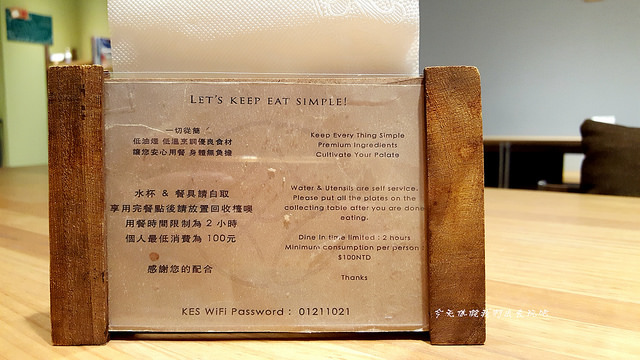 LET'S KEEP EAT SIMPLE!
一切從簡
低油煙 低溫烹調優良食材
讓您安心用餐 身體無負擔
Keep Every Thing Simple
Premium Ingredients
Cultivate Your Palate
水杯 & 餐具請自取
享用完餐點後請放置回收檯噢
用餐時間限制為 2 小時
個人最低消費為 100元
感謝您的配合
Water & Utensils are self service.
Please put all the plates on the
collecting table after you are done
eating.
Dine in time limited : 2 hours
Minimum consumption per person :
$100NTD
Thanks
KES WiFi Password : 01211021